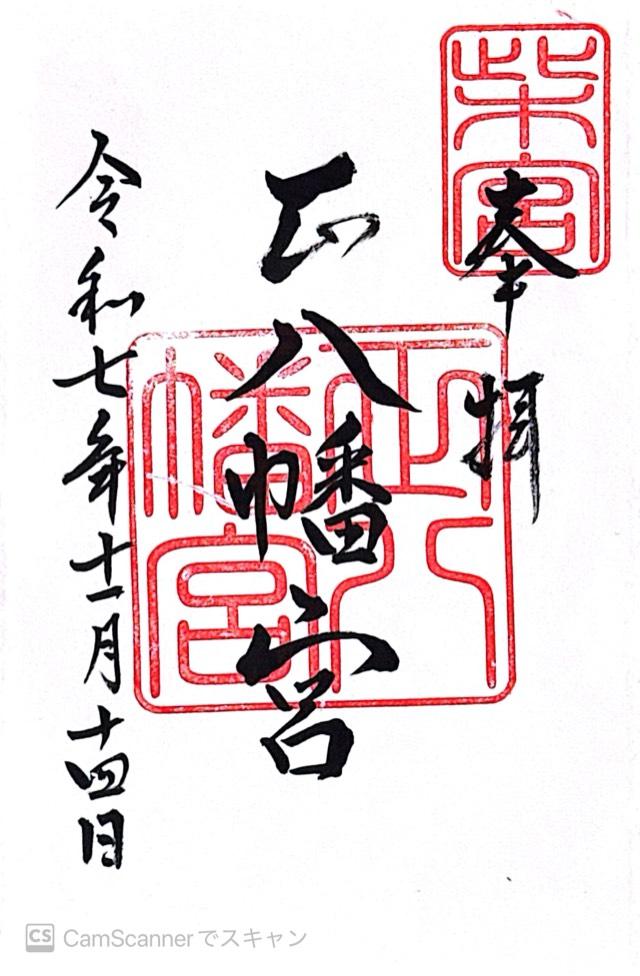 奉拝
柴宮
正八幡宮
正八幡宮
令和七年十一月十四日
CS CamScannerでスキャン